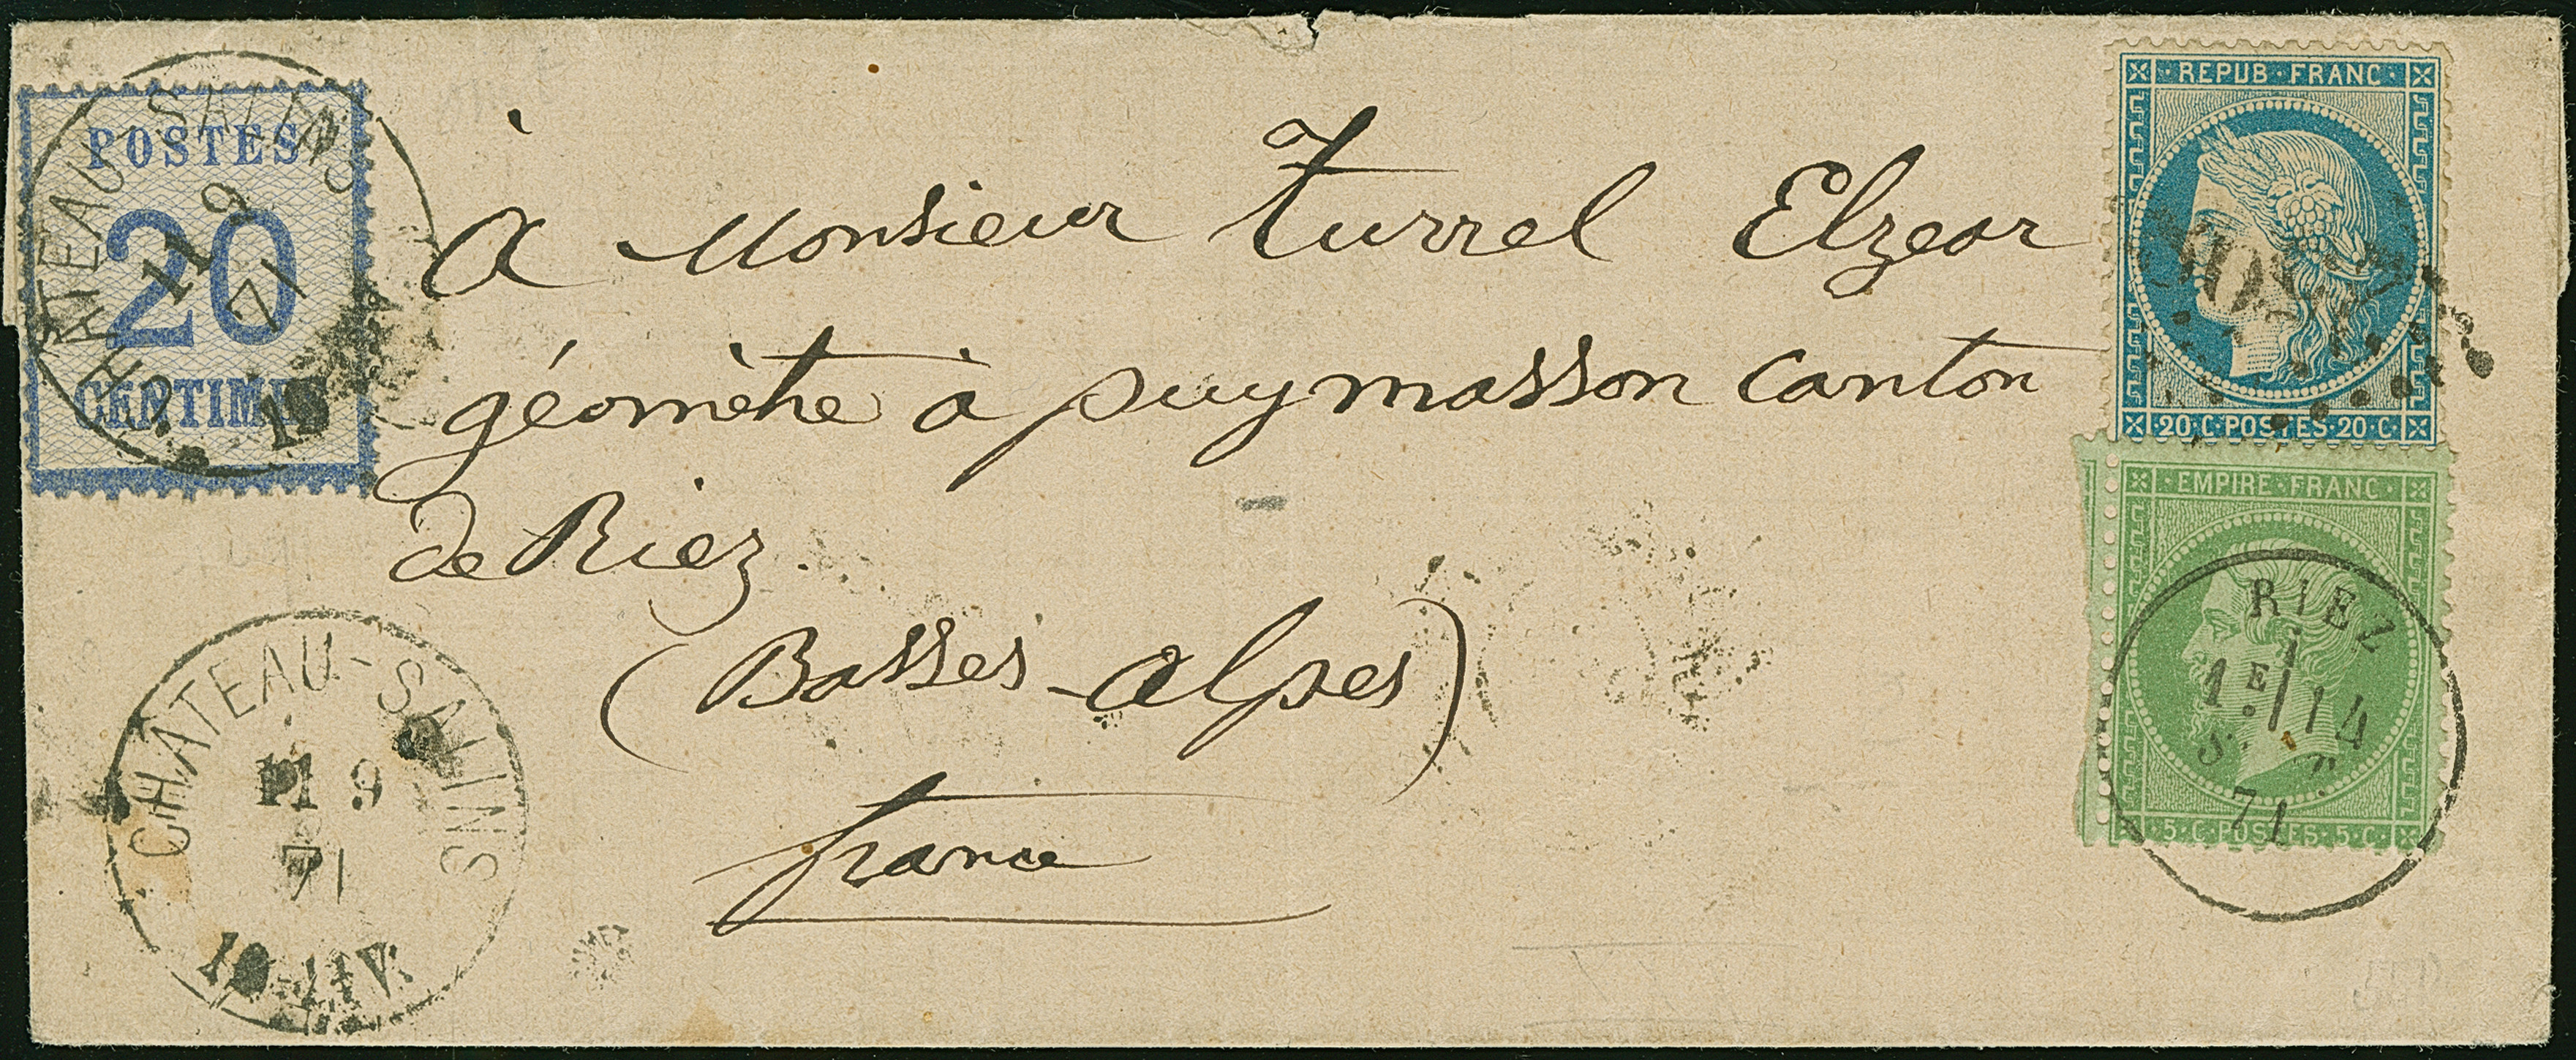 POSTES
20
CENTIMES
CHATEAU-SALINS
11 9
71
REPUB · FRANC ·
20 · C · POSTES · 20 · C
À Monsieur Turrel Elzear
géomètre à puymasson canton
de Riez
(Basses-alpes)
france
· EMPIRE · FRANC ·
RIEZ
1E
14
71
· 5 · C · POSTES · 5 · C ·
CHÂTEAU-SALINS
11 9
71